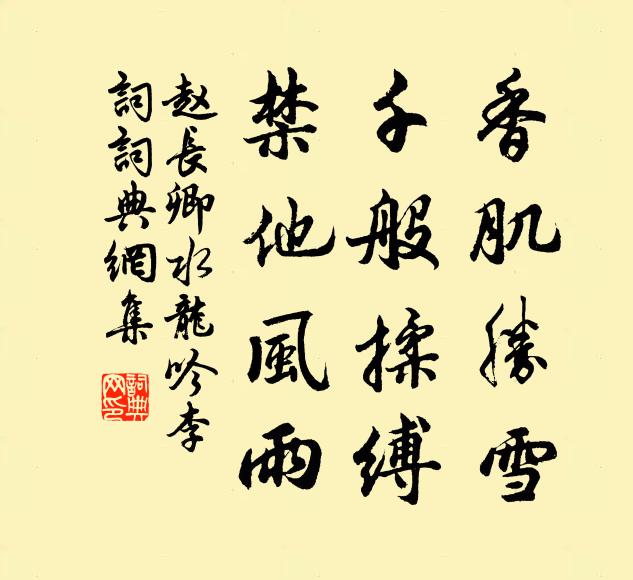 香肌勝雪
千般揉縛
禁他風雨
赵長卿水龍吟李
詞詞典網集
詞典网印